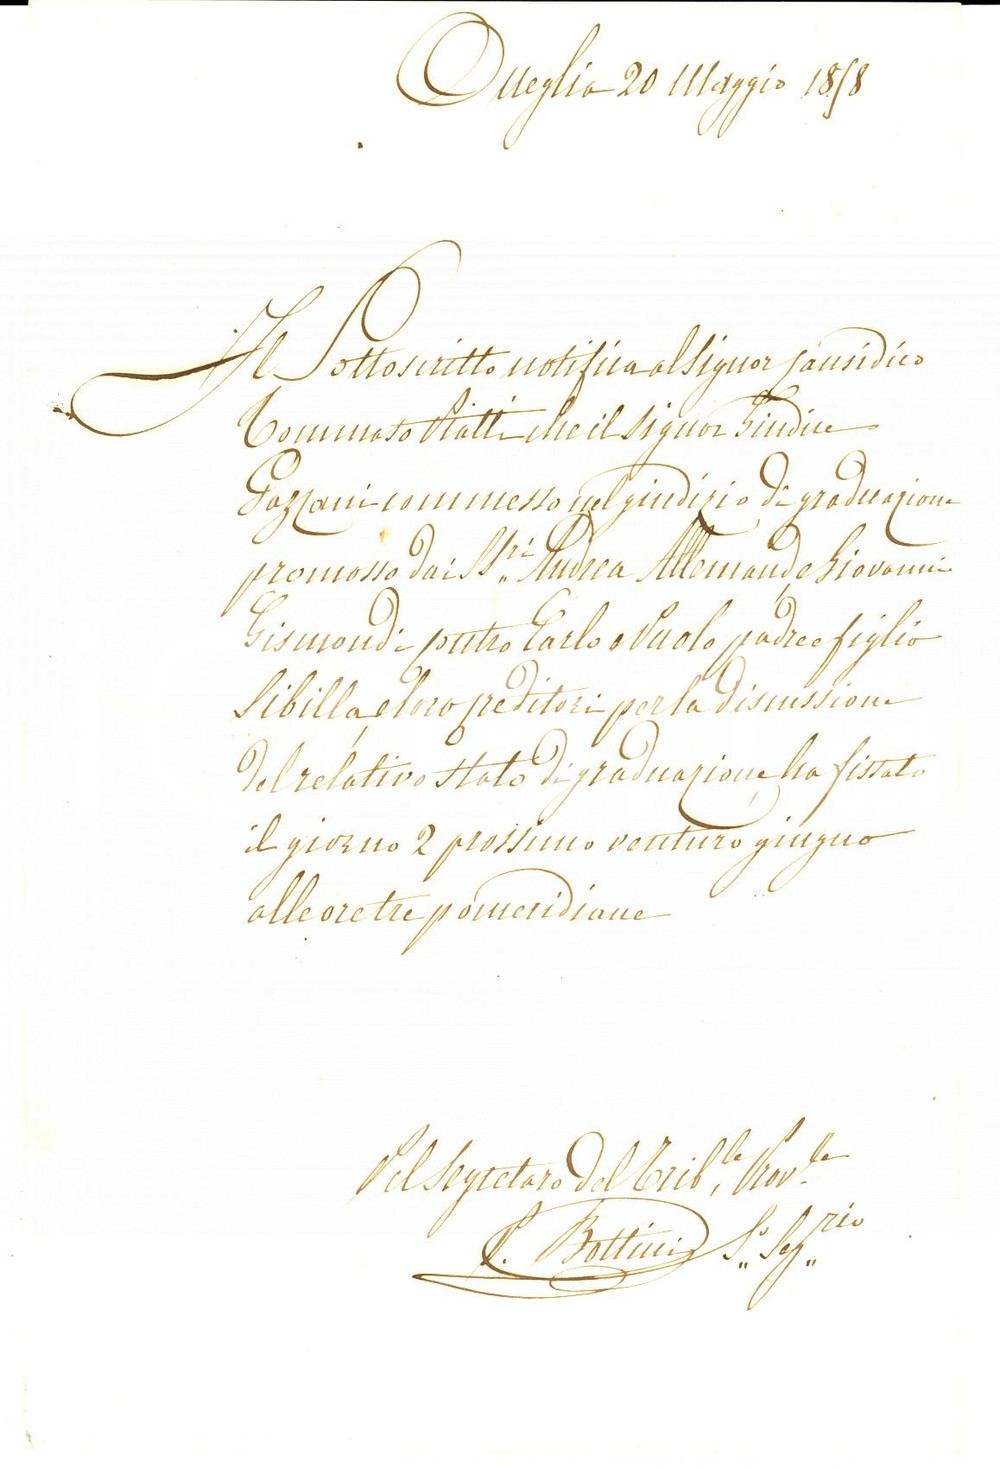 Oneglia 20 Maggio 1858
Il Sottoscritto notifica al Signor Causidico
Tommaso Ratti che il Signor Giudice
Gazzani commesso nel giudizio di graduazione
promosso dai SS.ri Andrea Allemand, e Giovanni
Gismondi contro Carlo e Paolo padre e figlio
Sibilla, e loro creditori per la discussione
del relativo stato di graduazione, ha fissato
il giorno 2 prossimo venturo giugno
alle ore tre pomeridiane
Pel Segretaro del Trib.le Prov.le
P. Bottini S.o Seg.rio